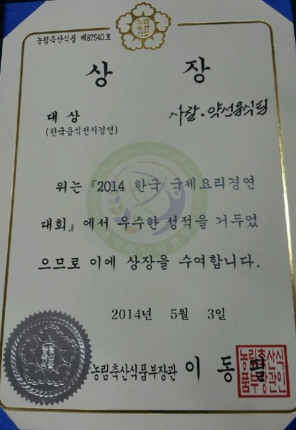 농림축산식품 제87540호
상 장
대 상
사찰·약선음식팀
(한국음식전시경연)
위는 『2014 한국 국제요리경연
대회』에서 우수한 성적을 거두었
으므로 이에 상장을 수여합니다.
2014년 5월 3일
농림축산식품부장관 이 동 필